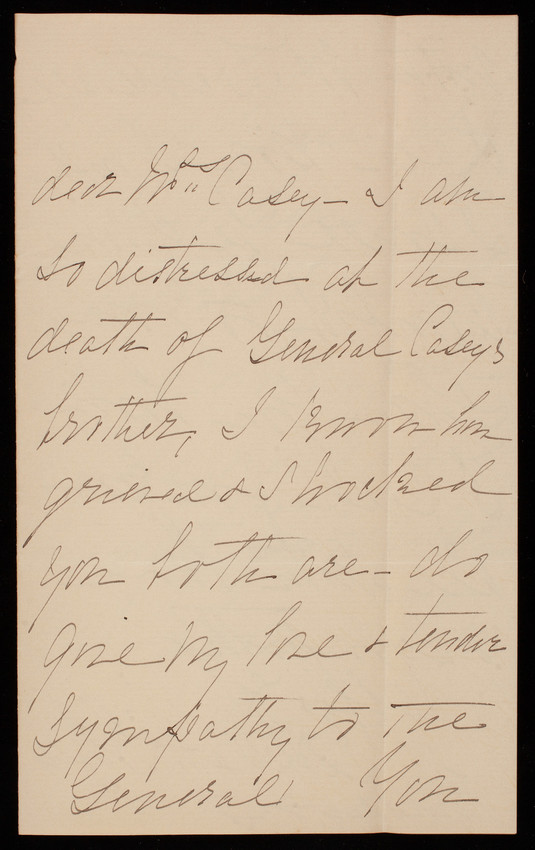 dear Mrs. Casey - I am
so distressed at the
death of General Casey's
brother, I know how
grieved & shocked
you both are - do
give my love & tender
sympathy to the
General You